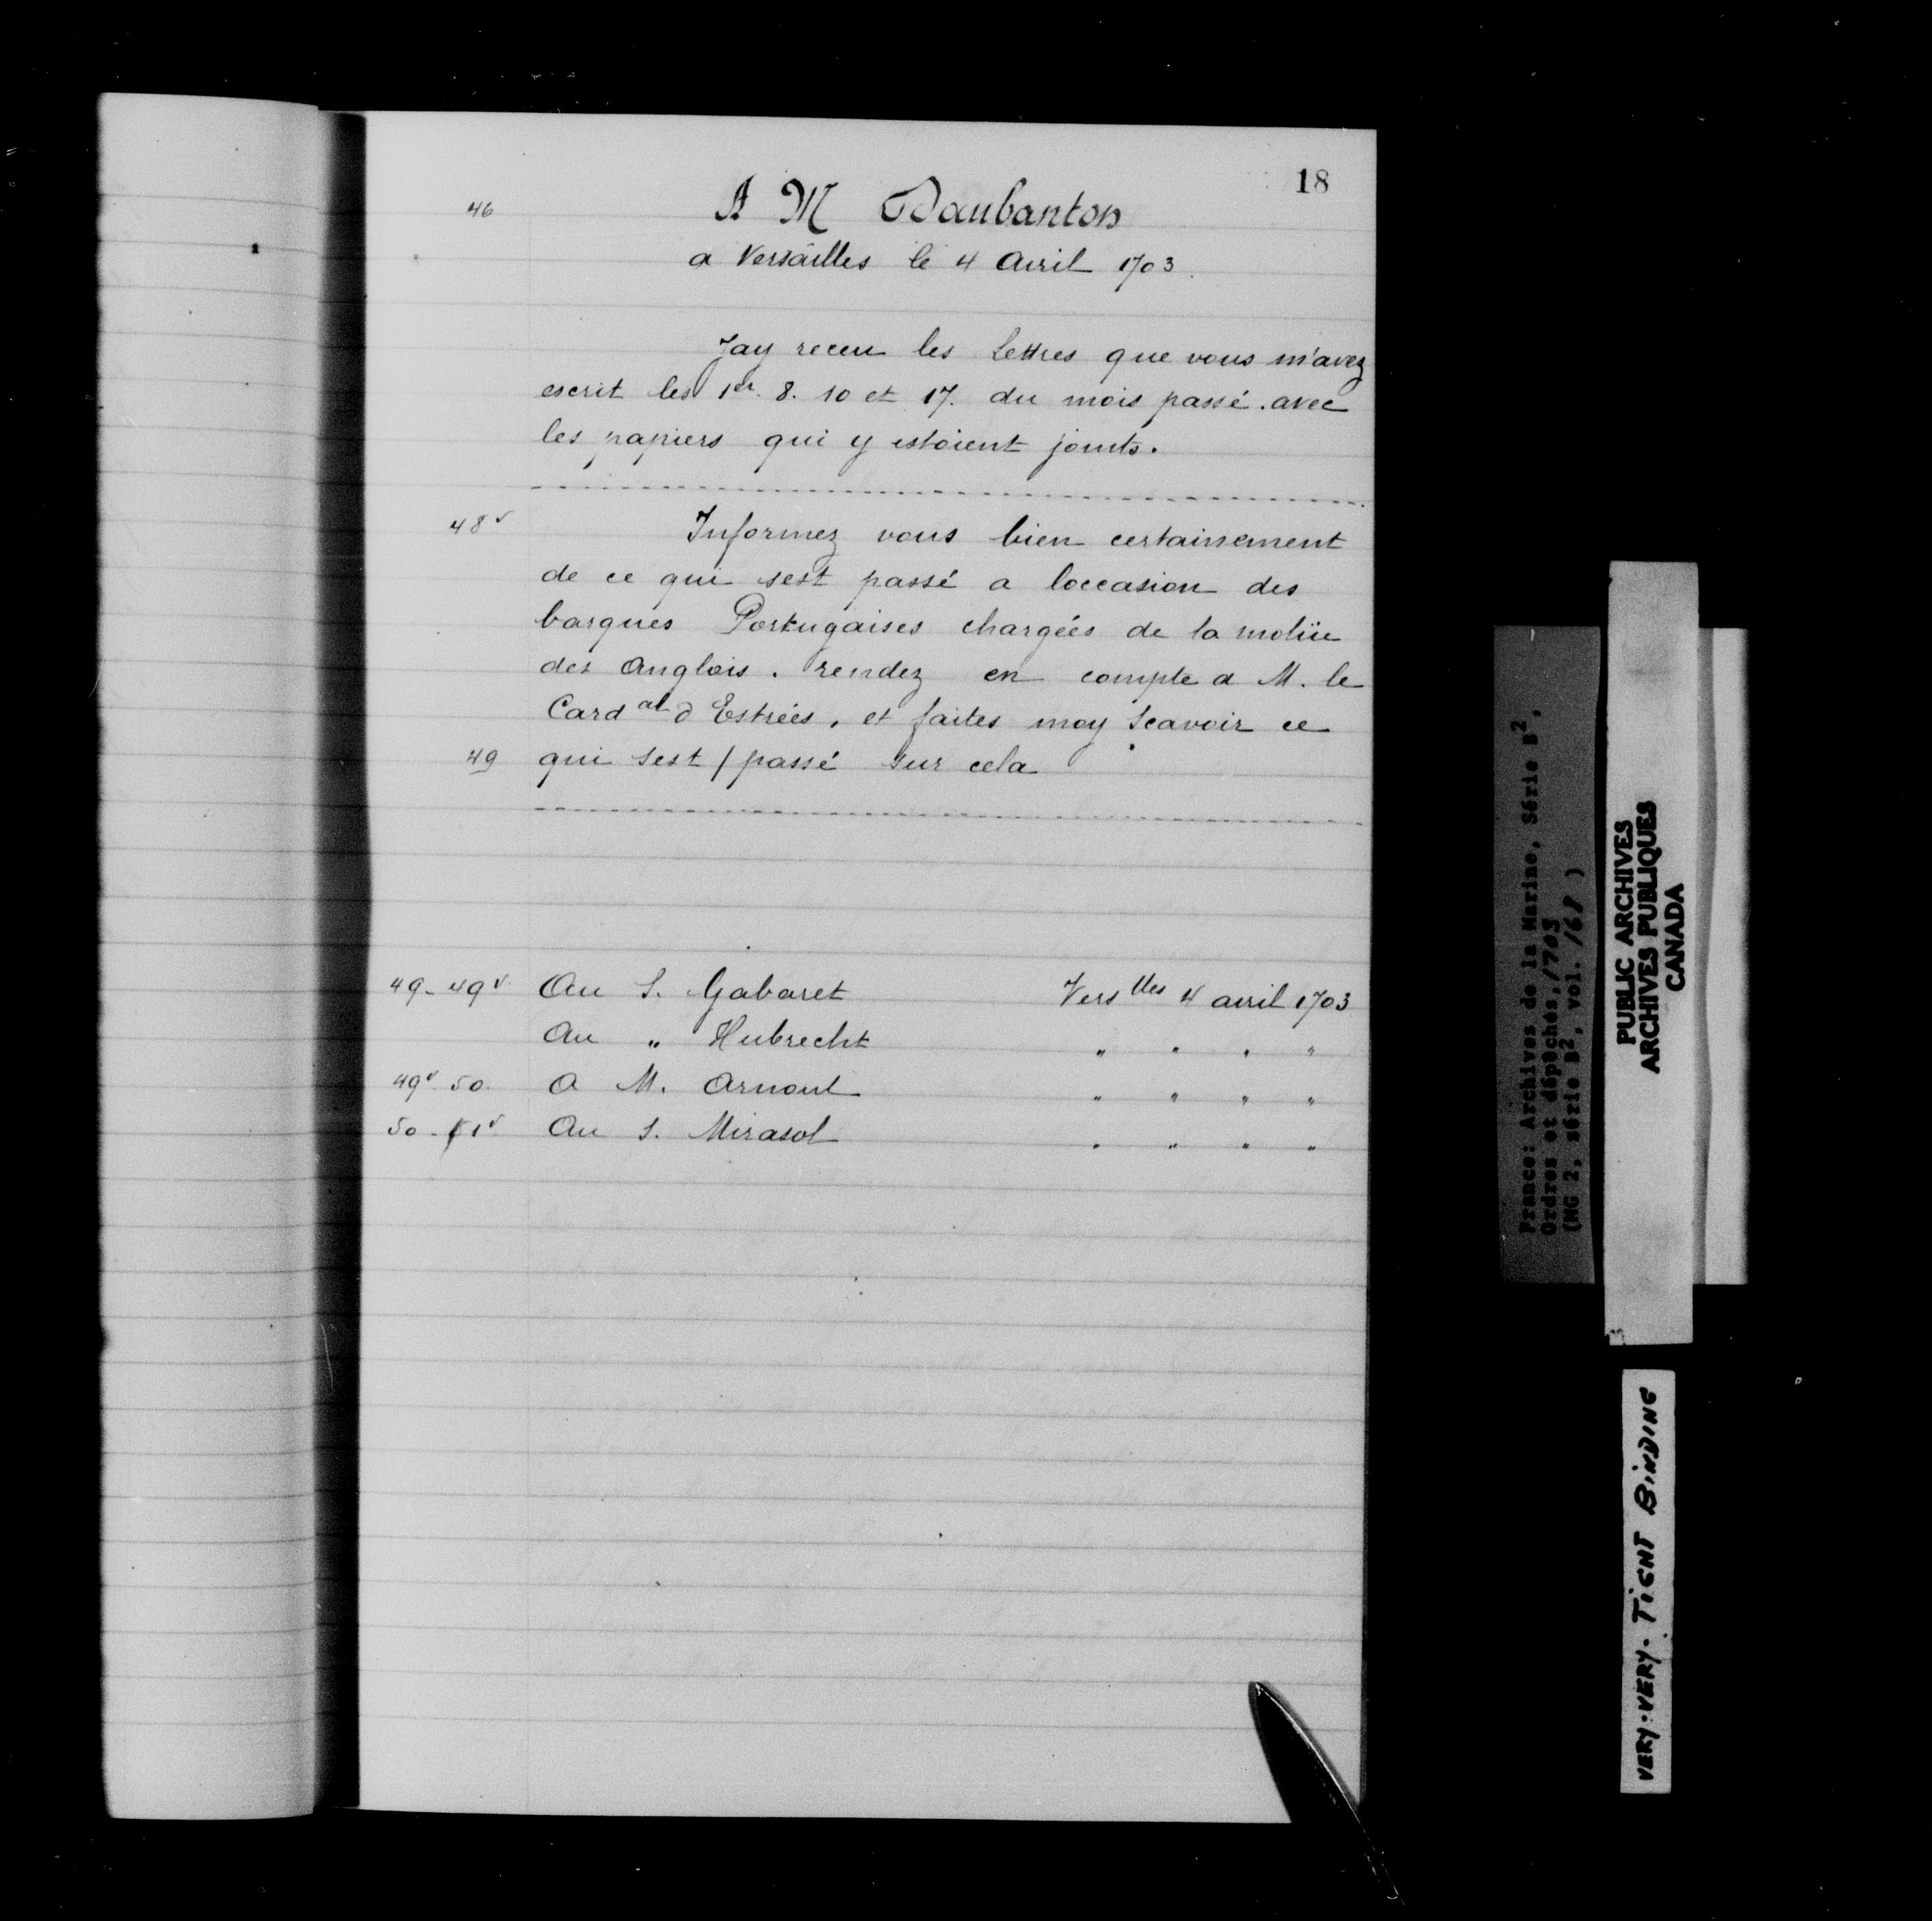 18
46 A M Daubanton
a Versailles le 4 Avril 1703.
Jay receu les Lettres que vous m'avez
escrit les 1er. 8. 10 et 17. du mois passé. avec
les papiers qui y estoient joints.
48v Informez vous bien certainement
de ce qui sest passé a loccasion des
barques Portugaises chargées de la moliie
des Anglois. rendez en compte a M. le
Cardal d Estrées, et faites moy Scavoir ce
49 qui sest / passé sur cela
49-49v Au S. Gabaret Verslles 4 avril 1703
Au " Hubrecht " " " "
49v 50. A M. Arnoul " " " "
50-51v Au S. Mirasol " " " "
France: Archives de la Marine, Série B2,
Ordres et dépêchés, 1703
(MG 2, série B2, vol. 168 )
PUBLIC ARCHIVES
ARCHIVES PUBLIQUES
CANADA
VERY·VERY·TIGHT BINDING